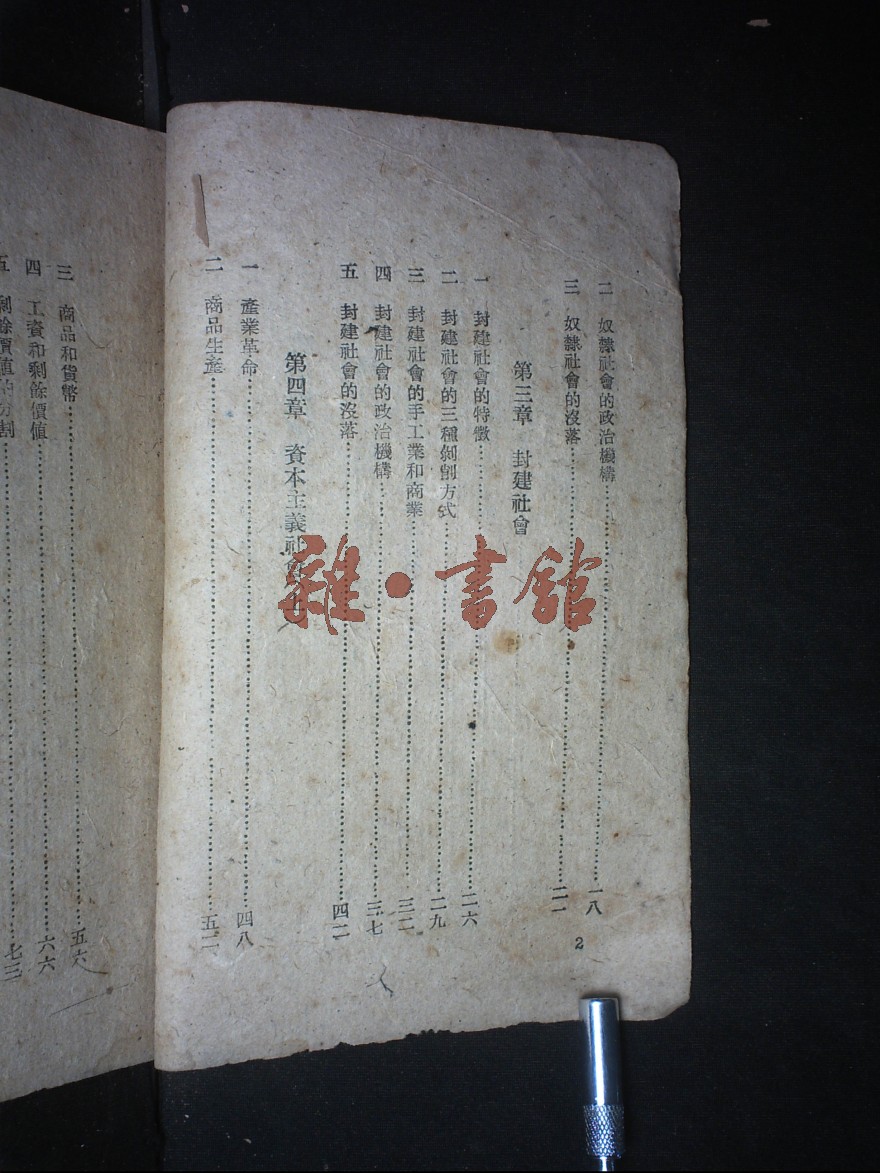 二　奴隸社會的政治機構……一八
三　奴隸社會的沒落……二一
第三章　封建社會
一　封建社會的特徵……二六
二　封建社會的三種剝削方式……二九
三　封建社會的手工業和商業……三二
四　封建社會的政治機構……三七
五　封建社會的沒落……四二
第四章　資本主義社會
一　產業革命……四八
二　商品生產……五二
2
三　商品和貨幣……五六
四　工資和剩餘價值……六六
五　剩餘價值的分割……七三
雜·書館